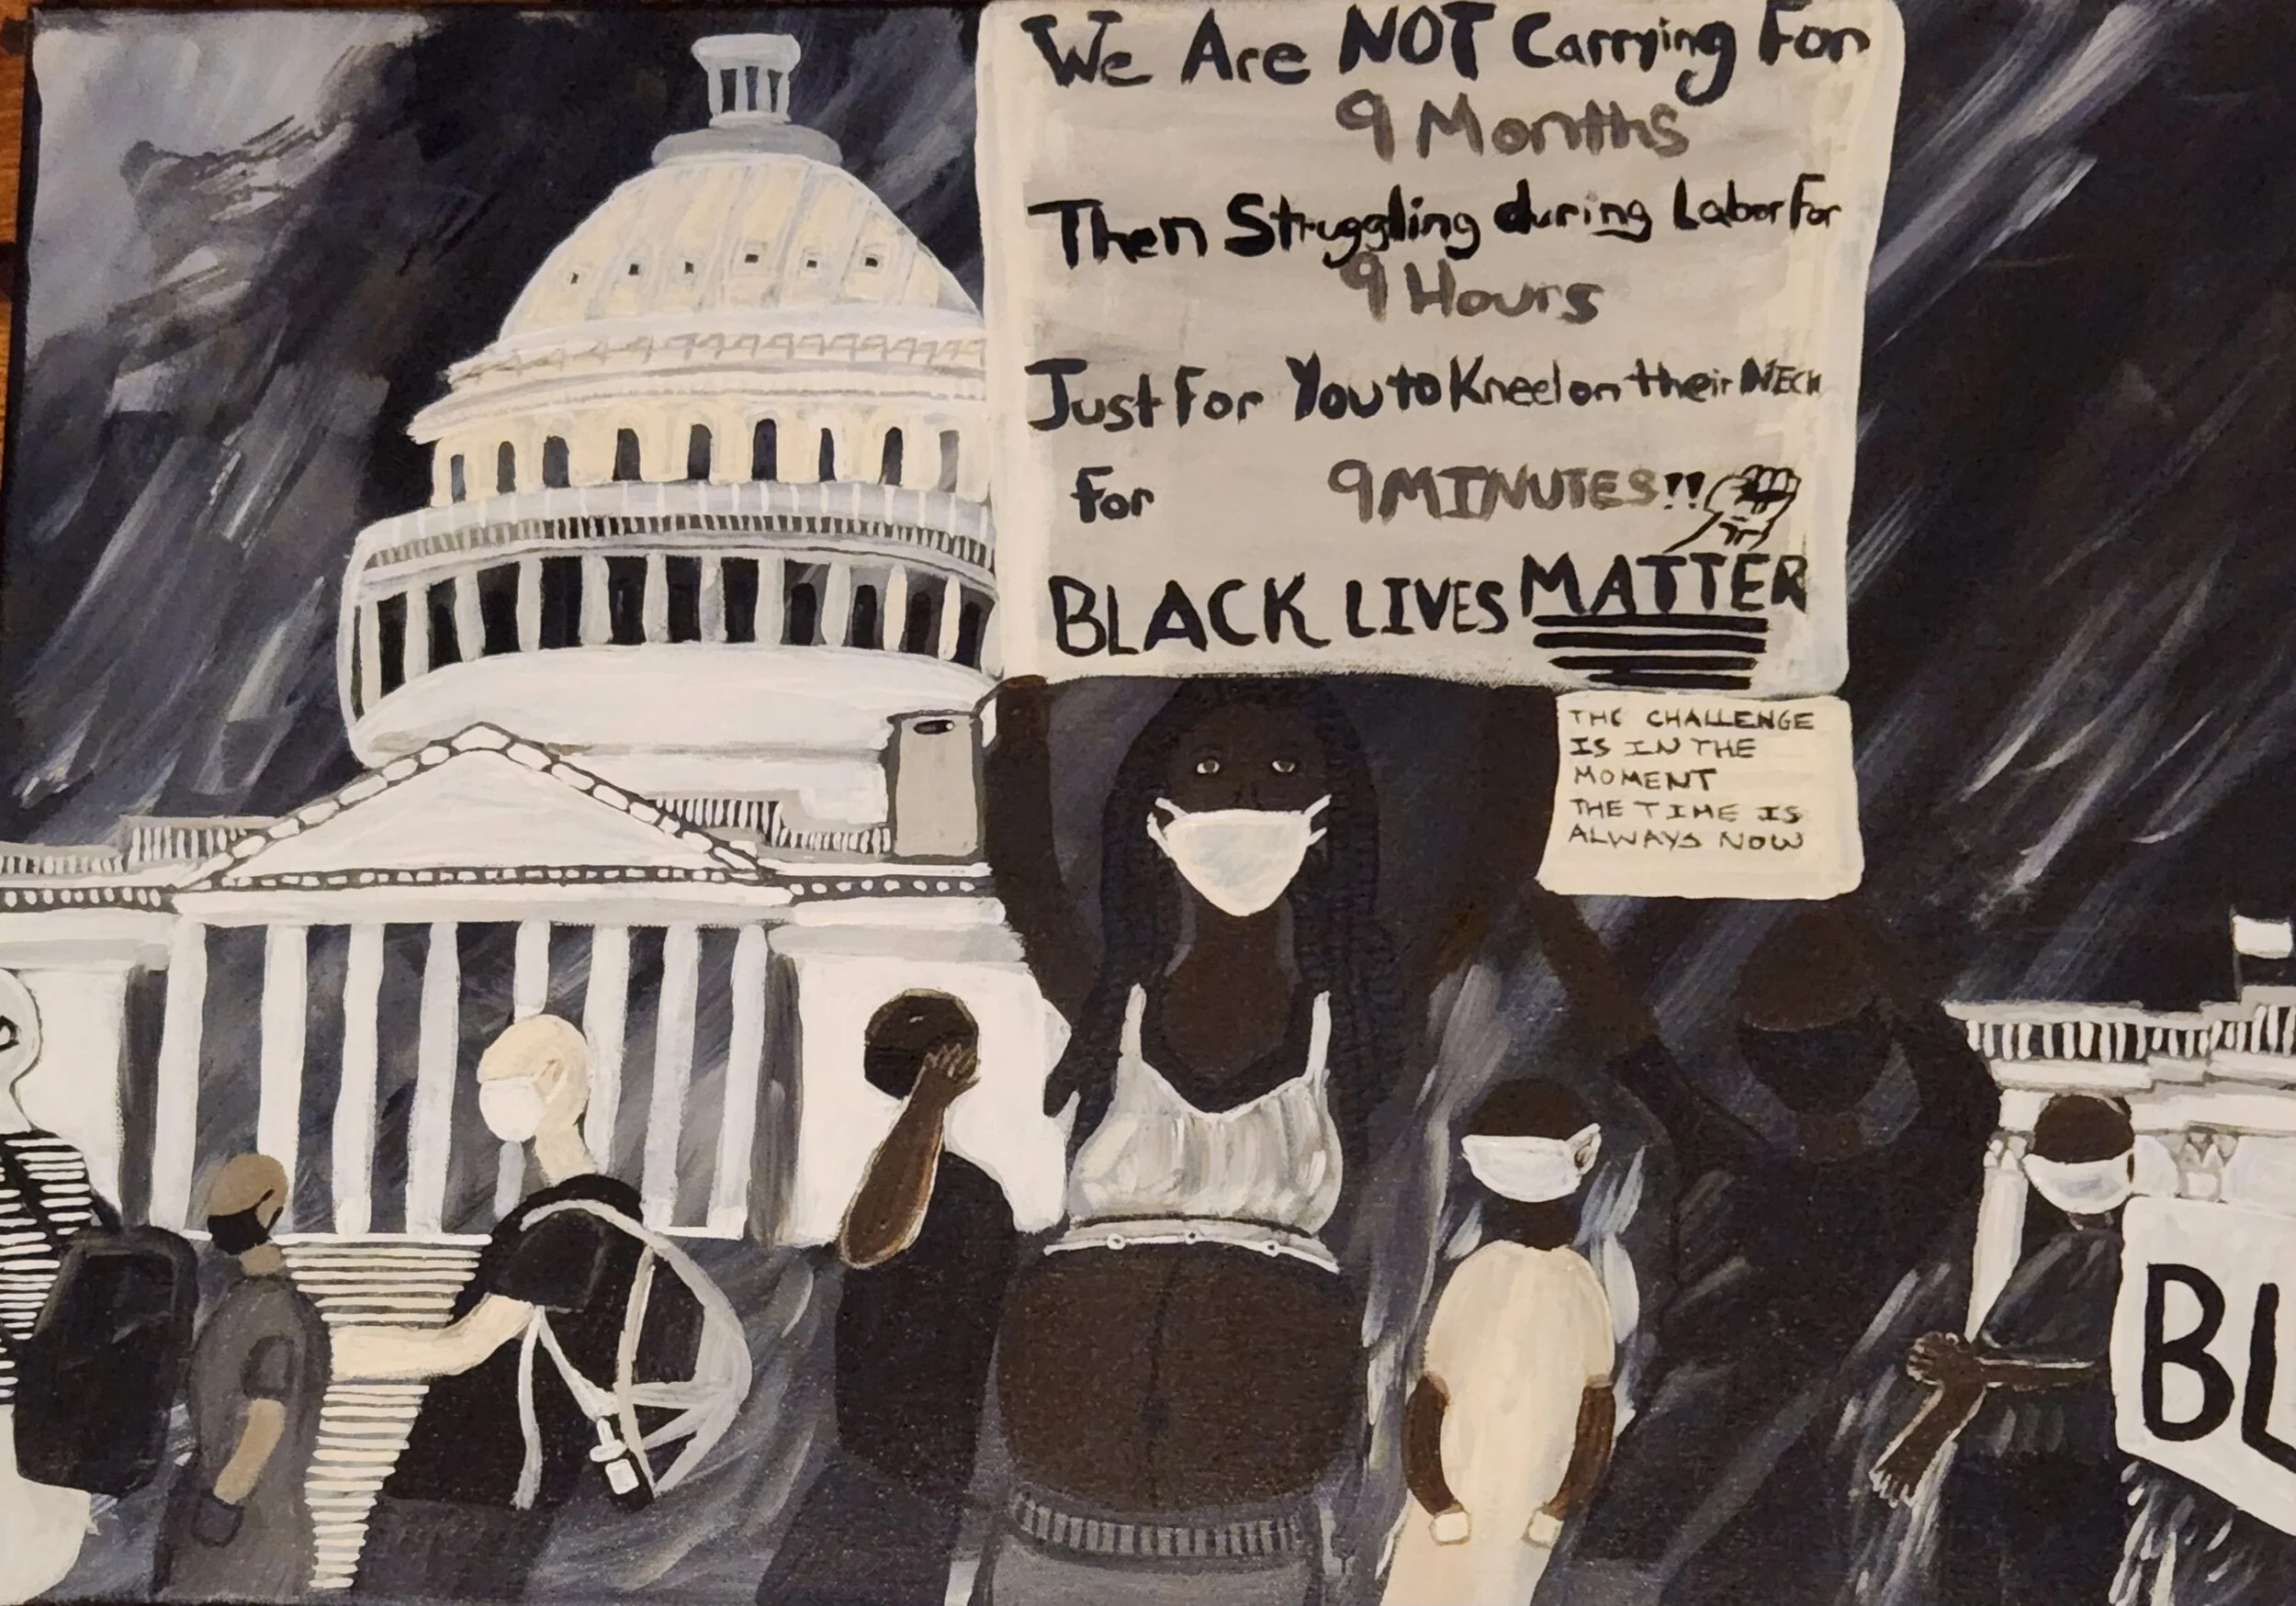 We Are NOT Carrying For
9 Months
Then Struggling during Labor For
9 Hours
Just For You to Kneel on their NECK
For 9 MINUTES!!
BLACK LIVES MATTER
THE CHALLENGE
IS IN THE
MOMENT
THE TIME IS
ALWAYS NOW
BL